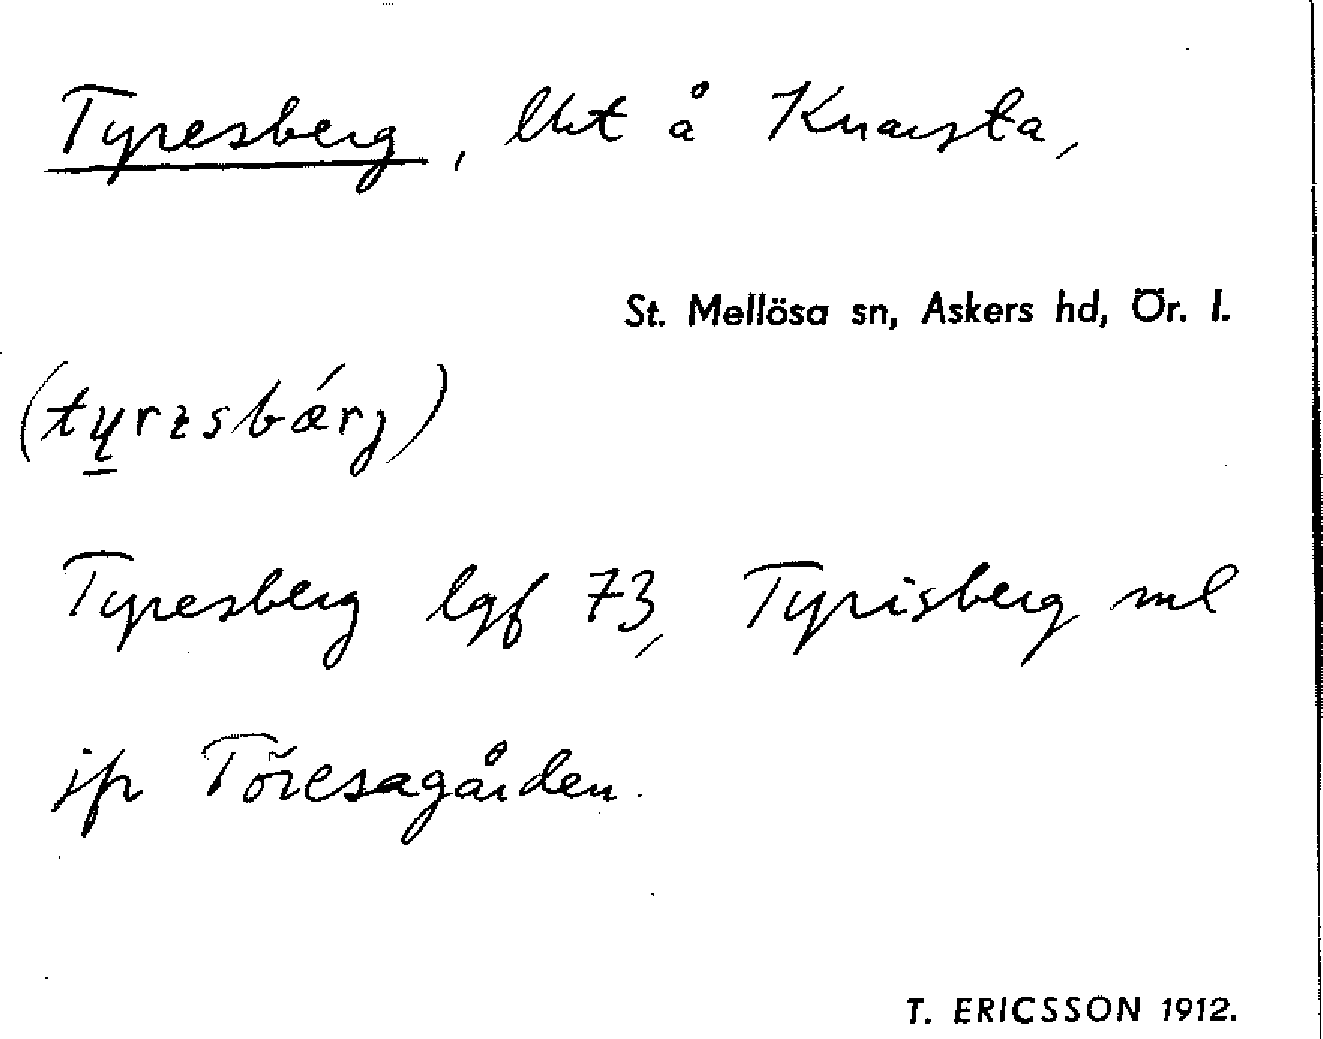 Tyresberg, lht å Knaysta,
St. Mellösa sn, Askers hd, Ör. l.
Tyresberg lgf 73, Tyrisberg ml
jfr Töresagården.
T. ERICSSON 1912.